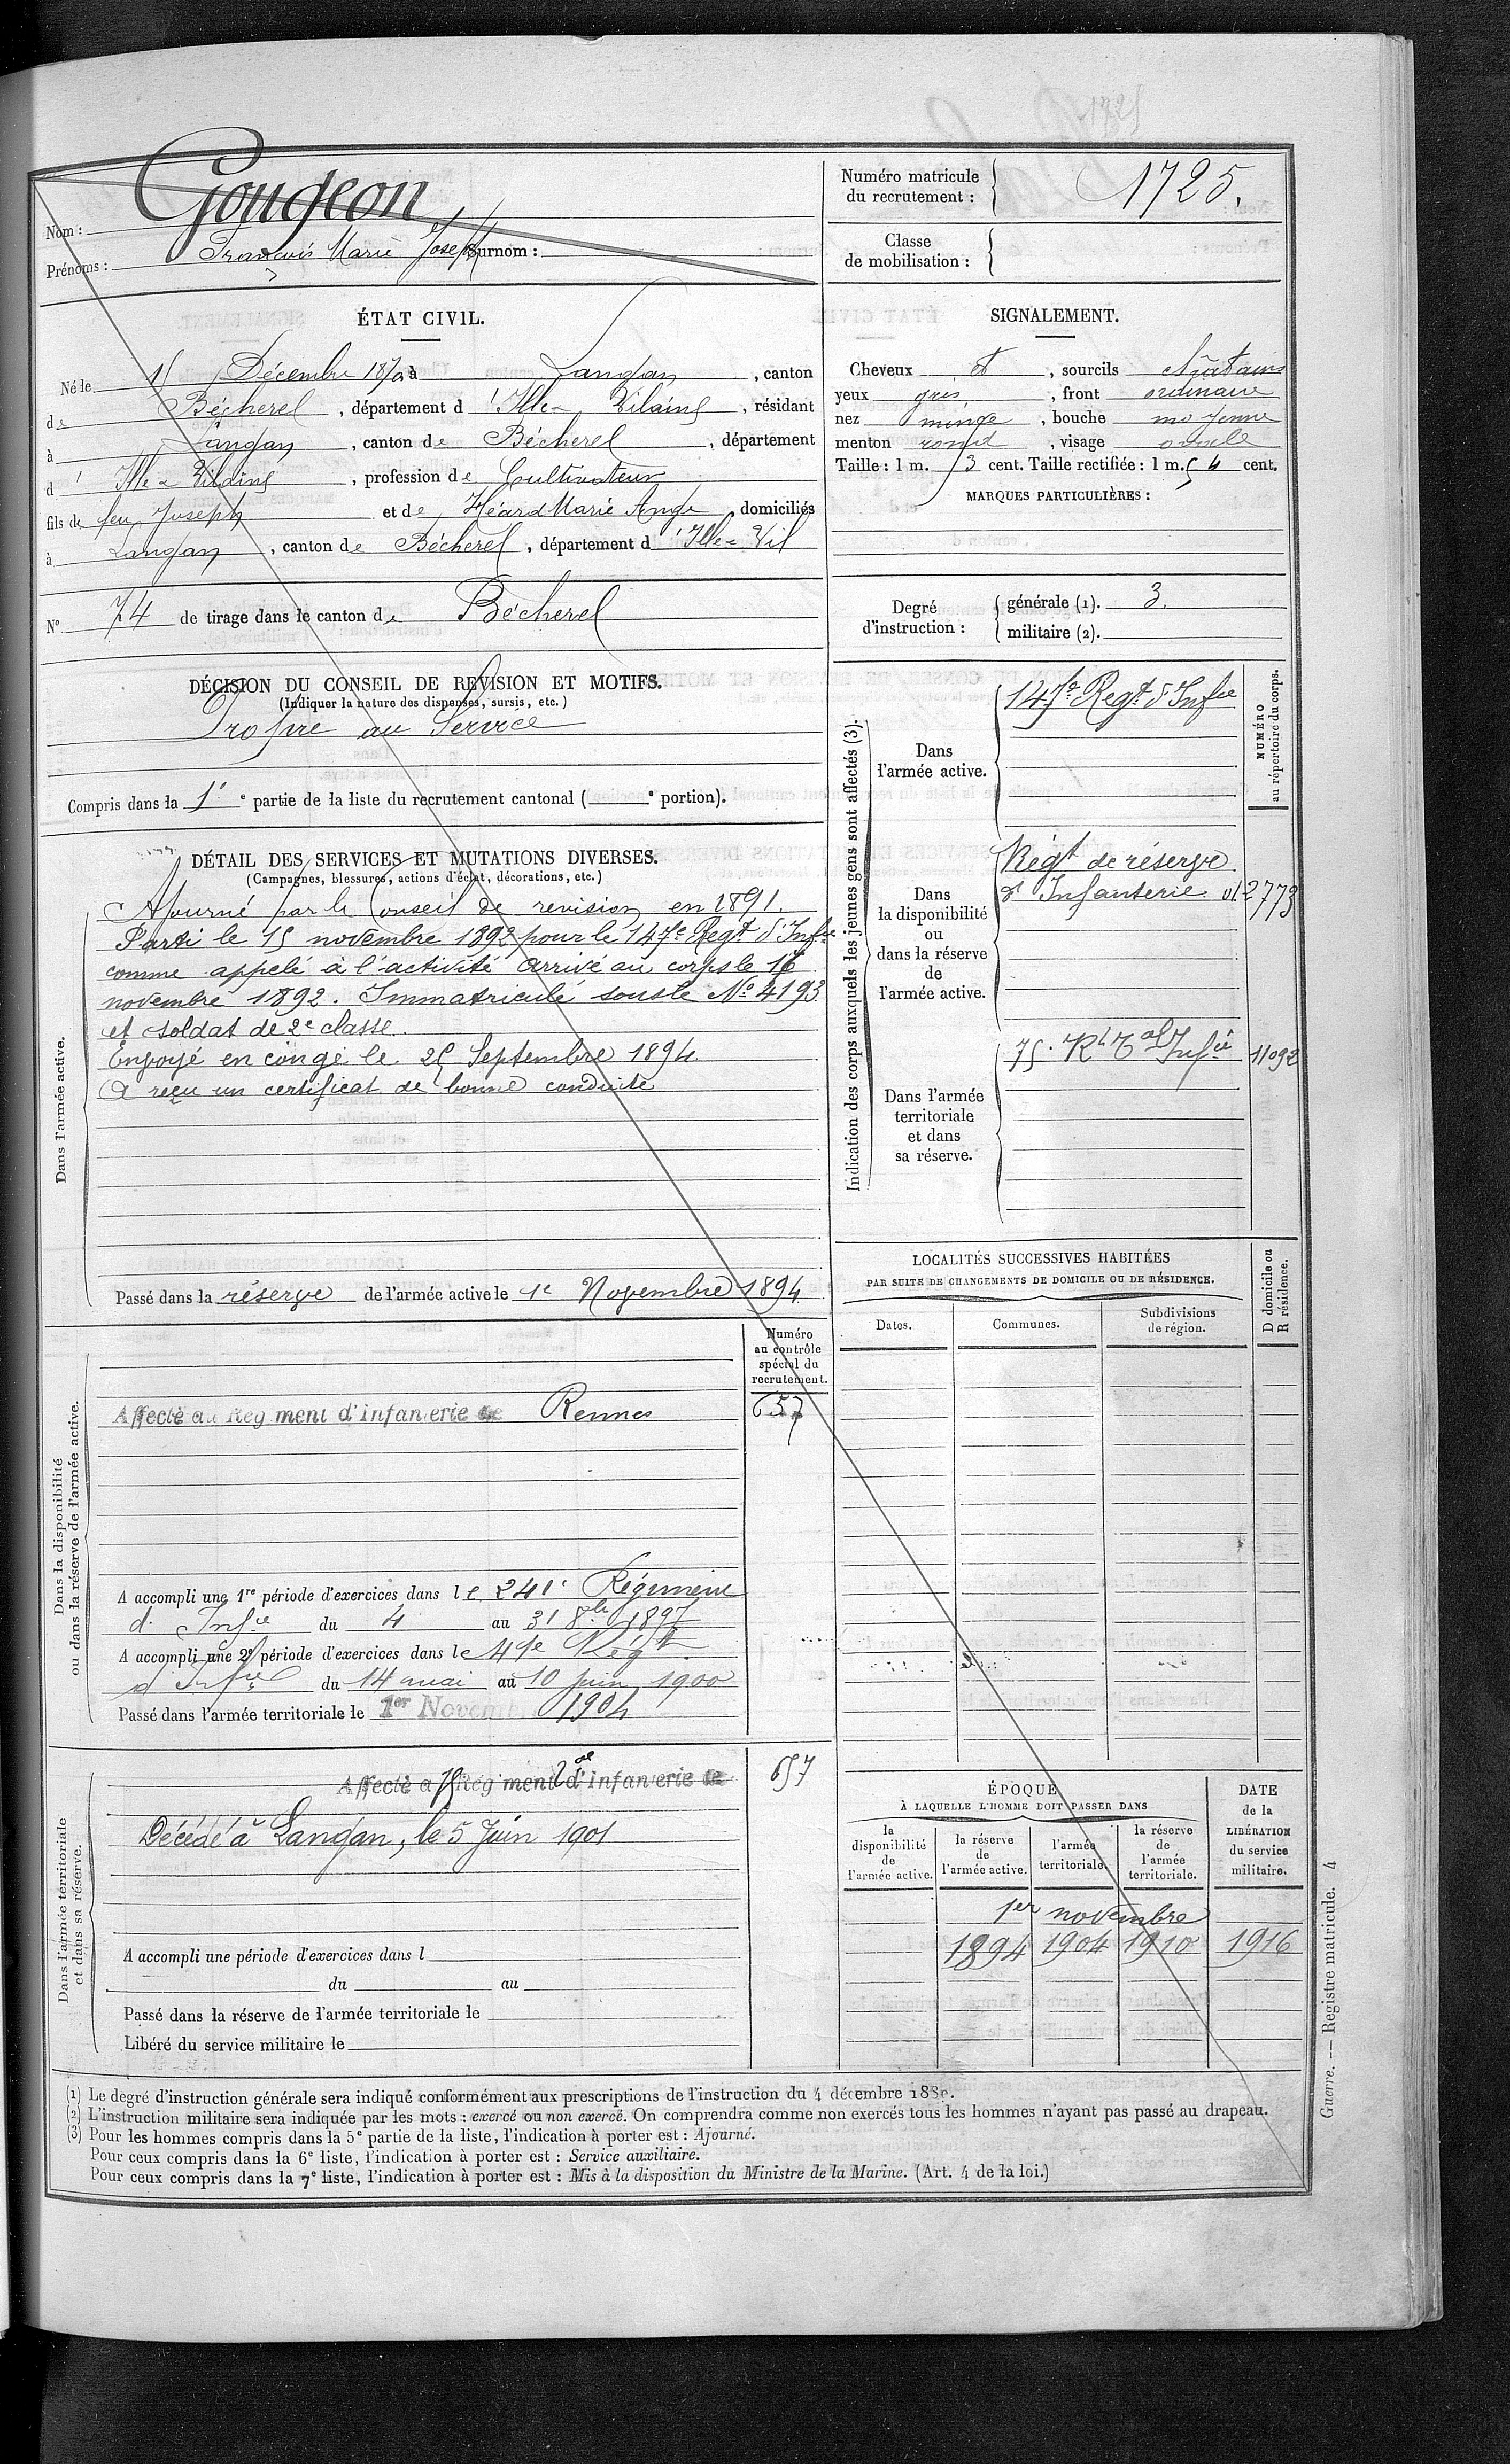 1725
Nom : Gougeon
Prénoms : François Marie Joseph Surnom :
Numéro matricule
du recrutement : 1725.
Classe
de mobilisation :
ÉTAT CIVIL.
Né le 15 Décembre 1870 à Langan, canton
de Bécherel, département d'Ille & Vilaine, résidant
à Langan, canton de Bécherel, département
d'Ille & Vilaine, profession de Cultivateur
fils de feu Joseph et de Héard Marie Ange, domiciliés
à Langan, canton de Bécherel, département d'Ille & Vil
N° 74 de tirage dans le canton de Bécherel
SIGNALEMENT.
Cheveux et, sourcils châtains
yeux gris, front ordinaire
nez mince, bouche moyenne
menton rond, visage ovale
Taille : 1 m. 53 cent. Taille rectifiée : 1 m. 54 cent.
MARQUES PARTICULIÈRES :
Degré
d'instruction :
générale (1). 3.
militaire (2).
DÉCISION DU CONSEIL DE REVISION ET MOTIFS.
(Indiquer la nature des dispenses, sursis, etc.)
Propre au Service
Compris dans la 1e partie de la liste du recrutement cantonal ( e portion).
DÉTAIL DES SERVICES ET MUTATIONS DIVERSES.
(Campagnes, blessures, actions d'éclat, décorations, etc.)
Dans l'armée active.
Ajourné par le Conseil de revision en 1891.
Parti le 15 novembre 1892 pour le 147e Regt d'Infie
comme appelé à l'activité arrivé au corps le 16
novembre 1892. Immatriculé sous le No 4193
et soldat de 2e classe.
Envoyé en congé le 25 Septembre 1894.
A reçu un certificat de bonne conduite
Passé dans la réserve de l'armée active le 1e Novembre 1894
Indication des corps auxquels les jeunes gens sont affectés (3).
NUMÉRO
au répertoire du corps.
Dans
l'armée active.
147e Regt d'Infie
Dans
la disponibilité
ou
dans la réserve
de
l'armée active.
Régt de réserve
d'Infanterie 012773
Dans l'armée
territoriale
et dans
sa réserve.
75e Rt Tal Infie 11092
LOCALITÉS SUCCESSIVES HABITÉES
PAR SUITE DE CHANGEMENTS DE DOMICILE OU DE RÉSIDENCE.
D domicile ou
R résidence.
Dates.
Communes.
Subdivisions
de région.
Dans la disponibilité
ou dans la réserve de l'armée active.
Numéro
au contrôle
spécial du
recrutement.
Affecté au Régiment d'Infanterie de Rennes 657
A accompli une 1re période d'exercices dans le 241e Régiment
d'Infie du 4 au 31 8bre 1897
A accompli une 2e période d'exercices dans le 41e Régt
d'Infie du 14 mai au 10 juin 1900
Passé dans l'armée territoriale le 1er Novembre 1904
Dans l'armée territoriale
et dans sa réserve.
Affecté a 75 Régiment Tal d'Infanterie de 657
Décédé à Langan, le 5 Juin 1901
A accompli une période d'exercices dans l
du au
Passé dans la réserve de l'armée territoriale le
Libéré du service militaire le
ÉPOQUE
À LAQUELLE L'HOMME DOIT PASSER DANS
DATE
de la
LIBÉRATION
du service
militaire.
la
disponibilité
de
l'armée active.
la réserve
de
l'armée active.
l'armée
territoriale.
la réserve
de
l'armée
territoriale.
1er novembre
1894 1904 1910 1916
(1) Le degré d'instruction générale sera indiqué conformément aux prescriptions de l'instruction du 4 décembre 1889.
(2) L'instruction militaire sera indiquée par les mots : exercé ou non exercé. On comprendra comme non exercés tous les hommes n'ayant pas passé au drapeau.
(3) Pour les hommes compris dans la 5e partie de la liste, l'indication à porter est : Ajourné.
Pour ceux compris dans la 6e liste, l'indication à porter est : Service auxiliaire.
Pour ceux compris dans la 7e liste, l'indication à porter est : Mis à la disposition du Ministre de la Marine. (Art. 4 de la loi.)
Guerre. — Registre matricule. 4